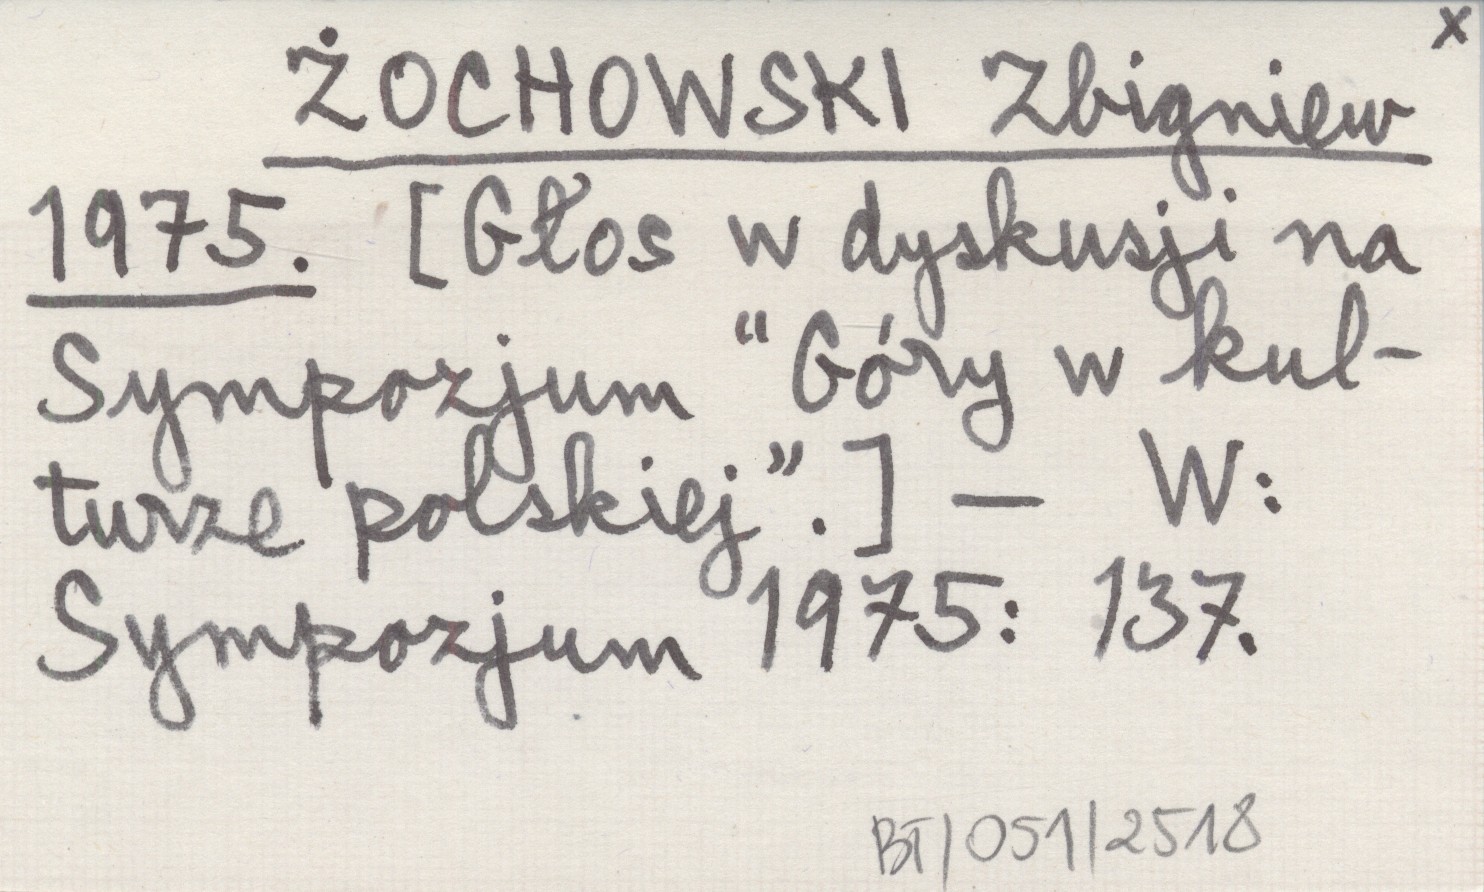 x
ŻOCHOWSKI Zbigniew
1975. [Głos w dyskusji na
Sympozjum “Góry w kul-
turze polskiej”.] — W:
Sympozjum 1975: 137.
BT/051/2518